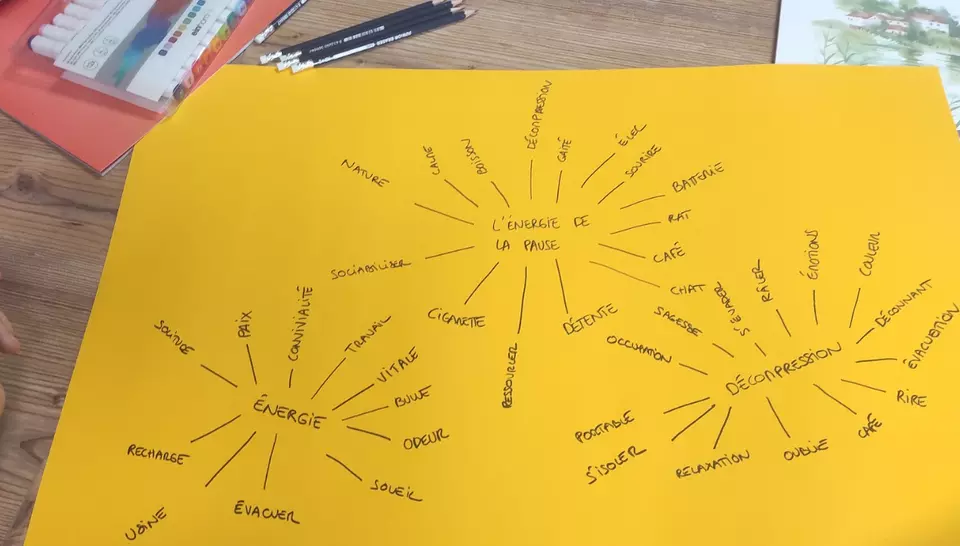 DÉCOMPRESSION
GAÎTÉ
SOURIRE
BATTERIE
RAT
CAFÉ
CHAT
DÉTENTE
RESSOURCER
CIGARETTE
SOCIABILISER
NATURE
L'ÉNERGIE DE
LA PAUSE
SOLITUDE
PAIX
CONVIVIALITÉ
TRAVAIL
VITALE
BULLE
ODEUR
SOLEIL
ÉVACUER
USINE
RECHARGE
ÉNERGIE
OCCUPATION
SAGESSE
S'ÉVADER
RÂLER
ÉMOTIONS
COULEUR
DÉCONNANT
ÉVACUATION
RIRE
CAFÉ
OUBLIE
RELAXATION
S'ISOLER
DÉCOMPRESSION